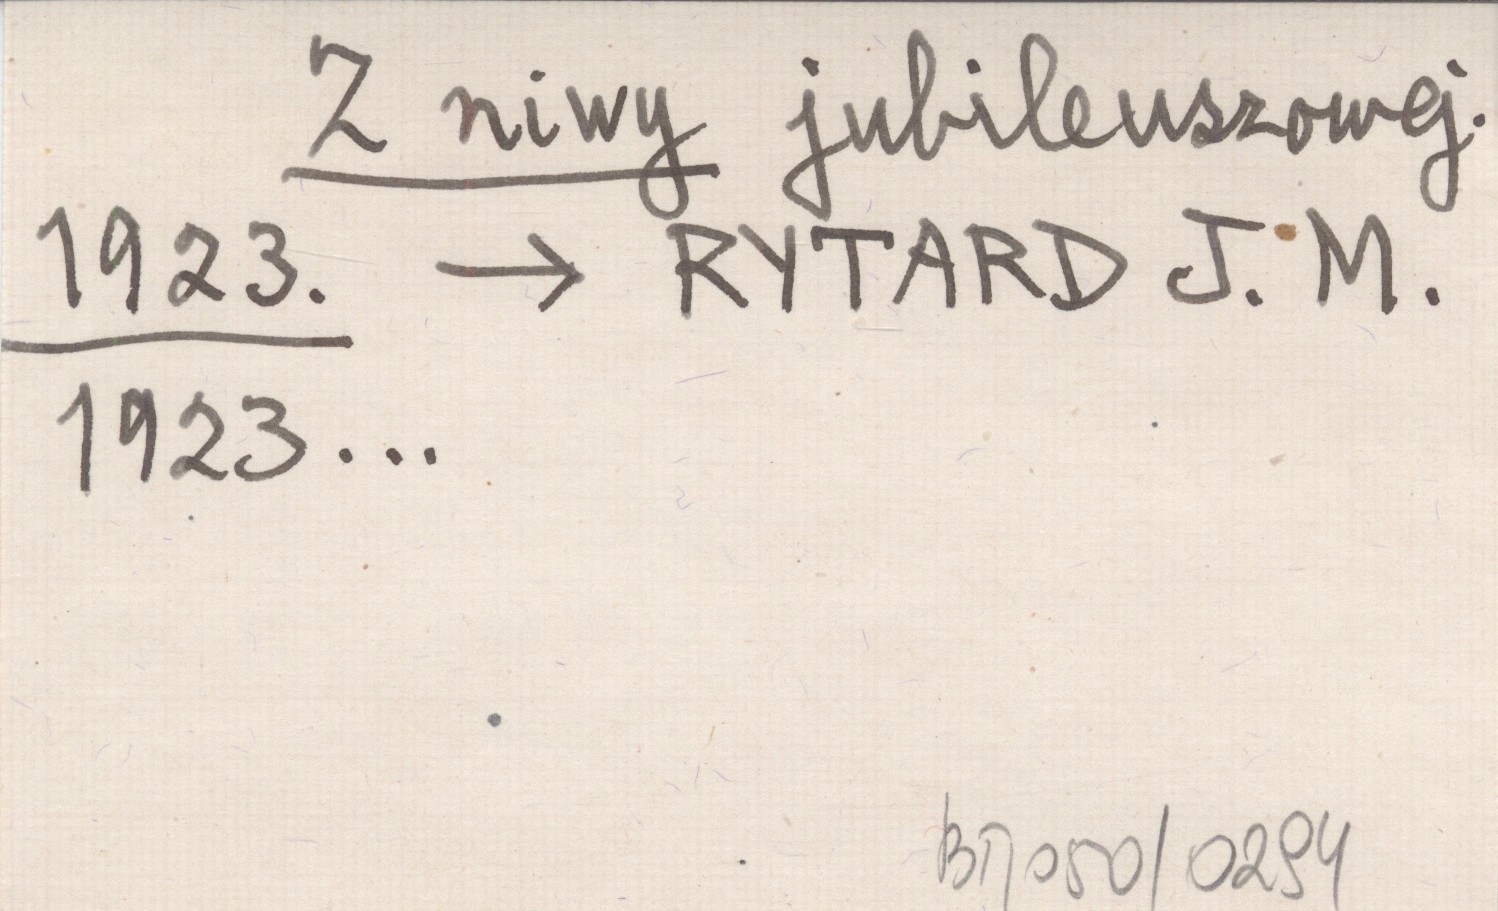 Z niwy jubileuszowej.
1923. → RYTARD J. M.
1923...
050/0294